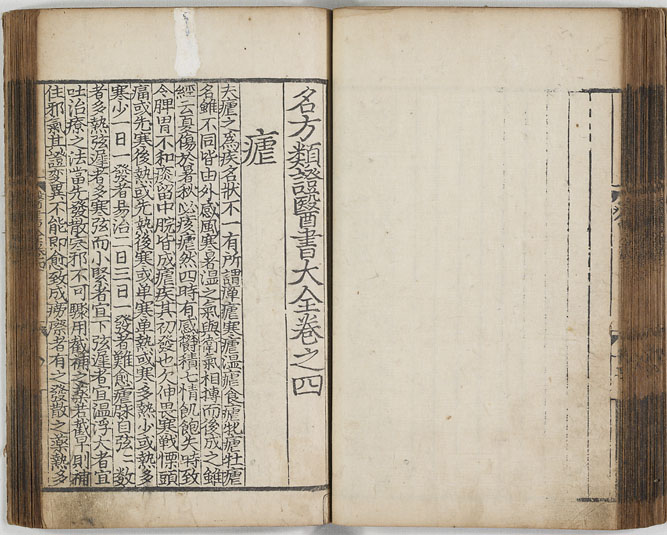 名方類證醫書大全卷之四
瘧
夫瘧之為疾名狀不一有所謂癉瘧寒瘧溫瘧食瘧牝瘧牡瘧
名雖不同皆由外感風寒暑溫之氣與衛氣相搏而後成之雖
經云夏傷於暑秋必痎瘧然四時有感欝積七情飢飽失時致
令脾胃不和痰留中脘皆成瘧疾其初發也欠伸畏寒戰慄頭
痛或先寒後熱或先熱後寒或单寒单熱或寒多熱少或熱多
寒少一日一發者易治二日三日一發者難愈瘧脉自弦弦數
者多熱弦遲者多寒弦而小緊者宜下弦遲者宜溫浮大者宜
吐治療之法當先發散寒邪不可驟用截補之藥若截早則補
住邪氣其證變異不能即愈致成癆瘵者有之發散之藥熱多